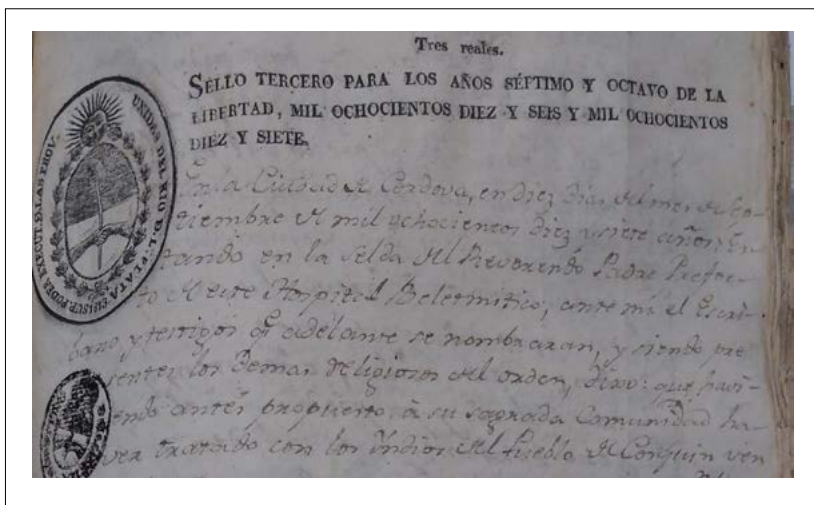 Tres reales.
SELLO TERCERO PARA LOS AÑOS SÉPTIMO Y OCTAVO DE LA
LIBERTAD, MIL OCHOCIENTOS DIEZ Y SEIS Y MIL OCHOCIENTOS
DIEZ Y SIETE.
UNIDAS DEL RIO D.L. PLATA EL SUP. PODER EXECUT. D. LAS PROV.
En la Ciudad de Cordova, en diez dias del mes de Sep-
tiembre de mil ochocientos diez y siete años: Es-
tando en la Selda del Reverendo Padre Prefec-
to de este Hospital Belermitico, ante mi el Escri-
bano y testigos q.e adelante se nombraran, y siendo pre
sentes los demas Religiosos del orden, dixo: que havi-
endo antes propuesto á su sagrada Comunidad ha-
ver tratado con los Yndios del Pueblo de Cosquin ven